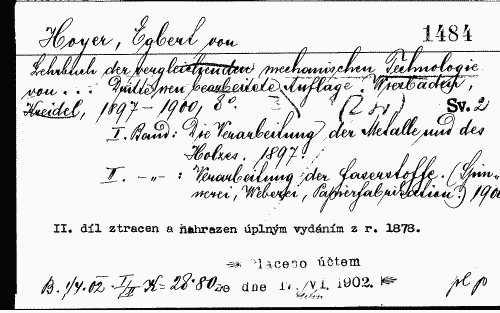 Hoyer, Egbert von
1484
Lehrbuch der vergleichenden mechanischen Technologie
von . . . Dritte, neu bearbeitete Auflage. Wiesbaden,
Kreidel, 1897 – 1900, 8°. (2 sv) Sv. 2
I. Band: Die Verarbeitung der Metalle und des
Holzes. 1897.
II. –„– : Verarbeitung der Faserstoffe. (Spin=
nerei, Weberei, Papierfabrikation.) 1900
II. díl ztracen a nahrazen úplným vydáním z r. 1878.
Placeno účtem
B. 1/4. 02 I/II K= 28·80 ze dne 17. /VI. 1902.